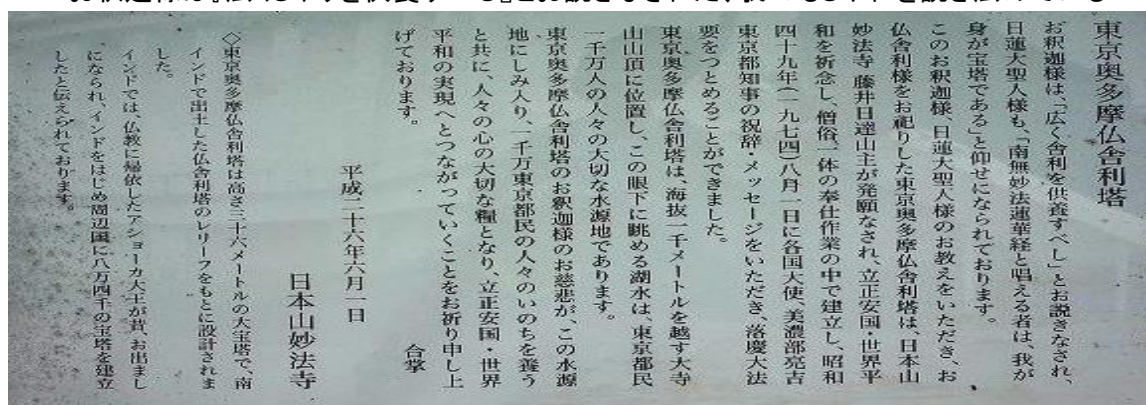 東京奥多摩仏舎利塔
お釈迦様は「広く舎利を供養すべし」とお説きなされ、
日蓮大聖人様も、「南無妙法蓮華経と唱える者は、我が
身が宝塔である」と仰せになられております。
このお釈迦様、日蓮大聖人様のお教えをいただき、お
仏舎利様をお祀りした東京奥多摩仏舎利塔は、日本山
妙法寺 藤井日達山主が発願なされ、立正安国・世界平
和を祈念し、僧俗一体の奉仕作業の中で建立し、昭和
四十九年(一九七四)八月一日に各国大使、美濃部亮吉
東京都知事の祝辞・メッセージをいただき、落慶大法
要をつとめることができました。
東京奥多摩仏舎利塔は、海抜一千メートルを越す大寺
山山頂に位置し、この眼下に眺める湖水は、東京都民
一千万人の人々の大切な水源地であります。
東京奥多摩仏舎利塔のお釈迦様のお慈悲が、この水源
地にしみ入り、一千万東京都民の人々のいのちを養う
と共に、人々の心の大切な糧となり、立正安国・世界
平和の実現へとつながっていくことをお祈り申し上
げております。
合掌
平成二十六年六月一日
日本山妙法寺
◇東京奥多摩仏舎利塔は高さ三十六メートルの大宝塔で、南
インドで出土した仏舎利塔のレリーフをもとに設計されま
した。
インドでは、仏教に帰依したアショーカ大王が昔、お出まし
になられ、インドをはじめ周辺国に八万四千の宝塔を建立
したと伝えられております。